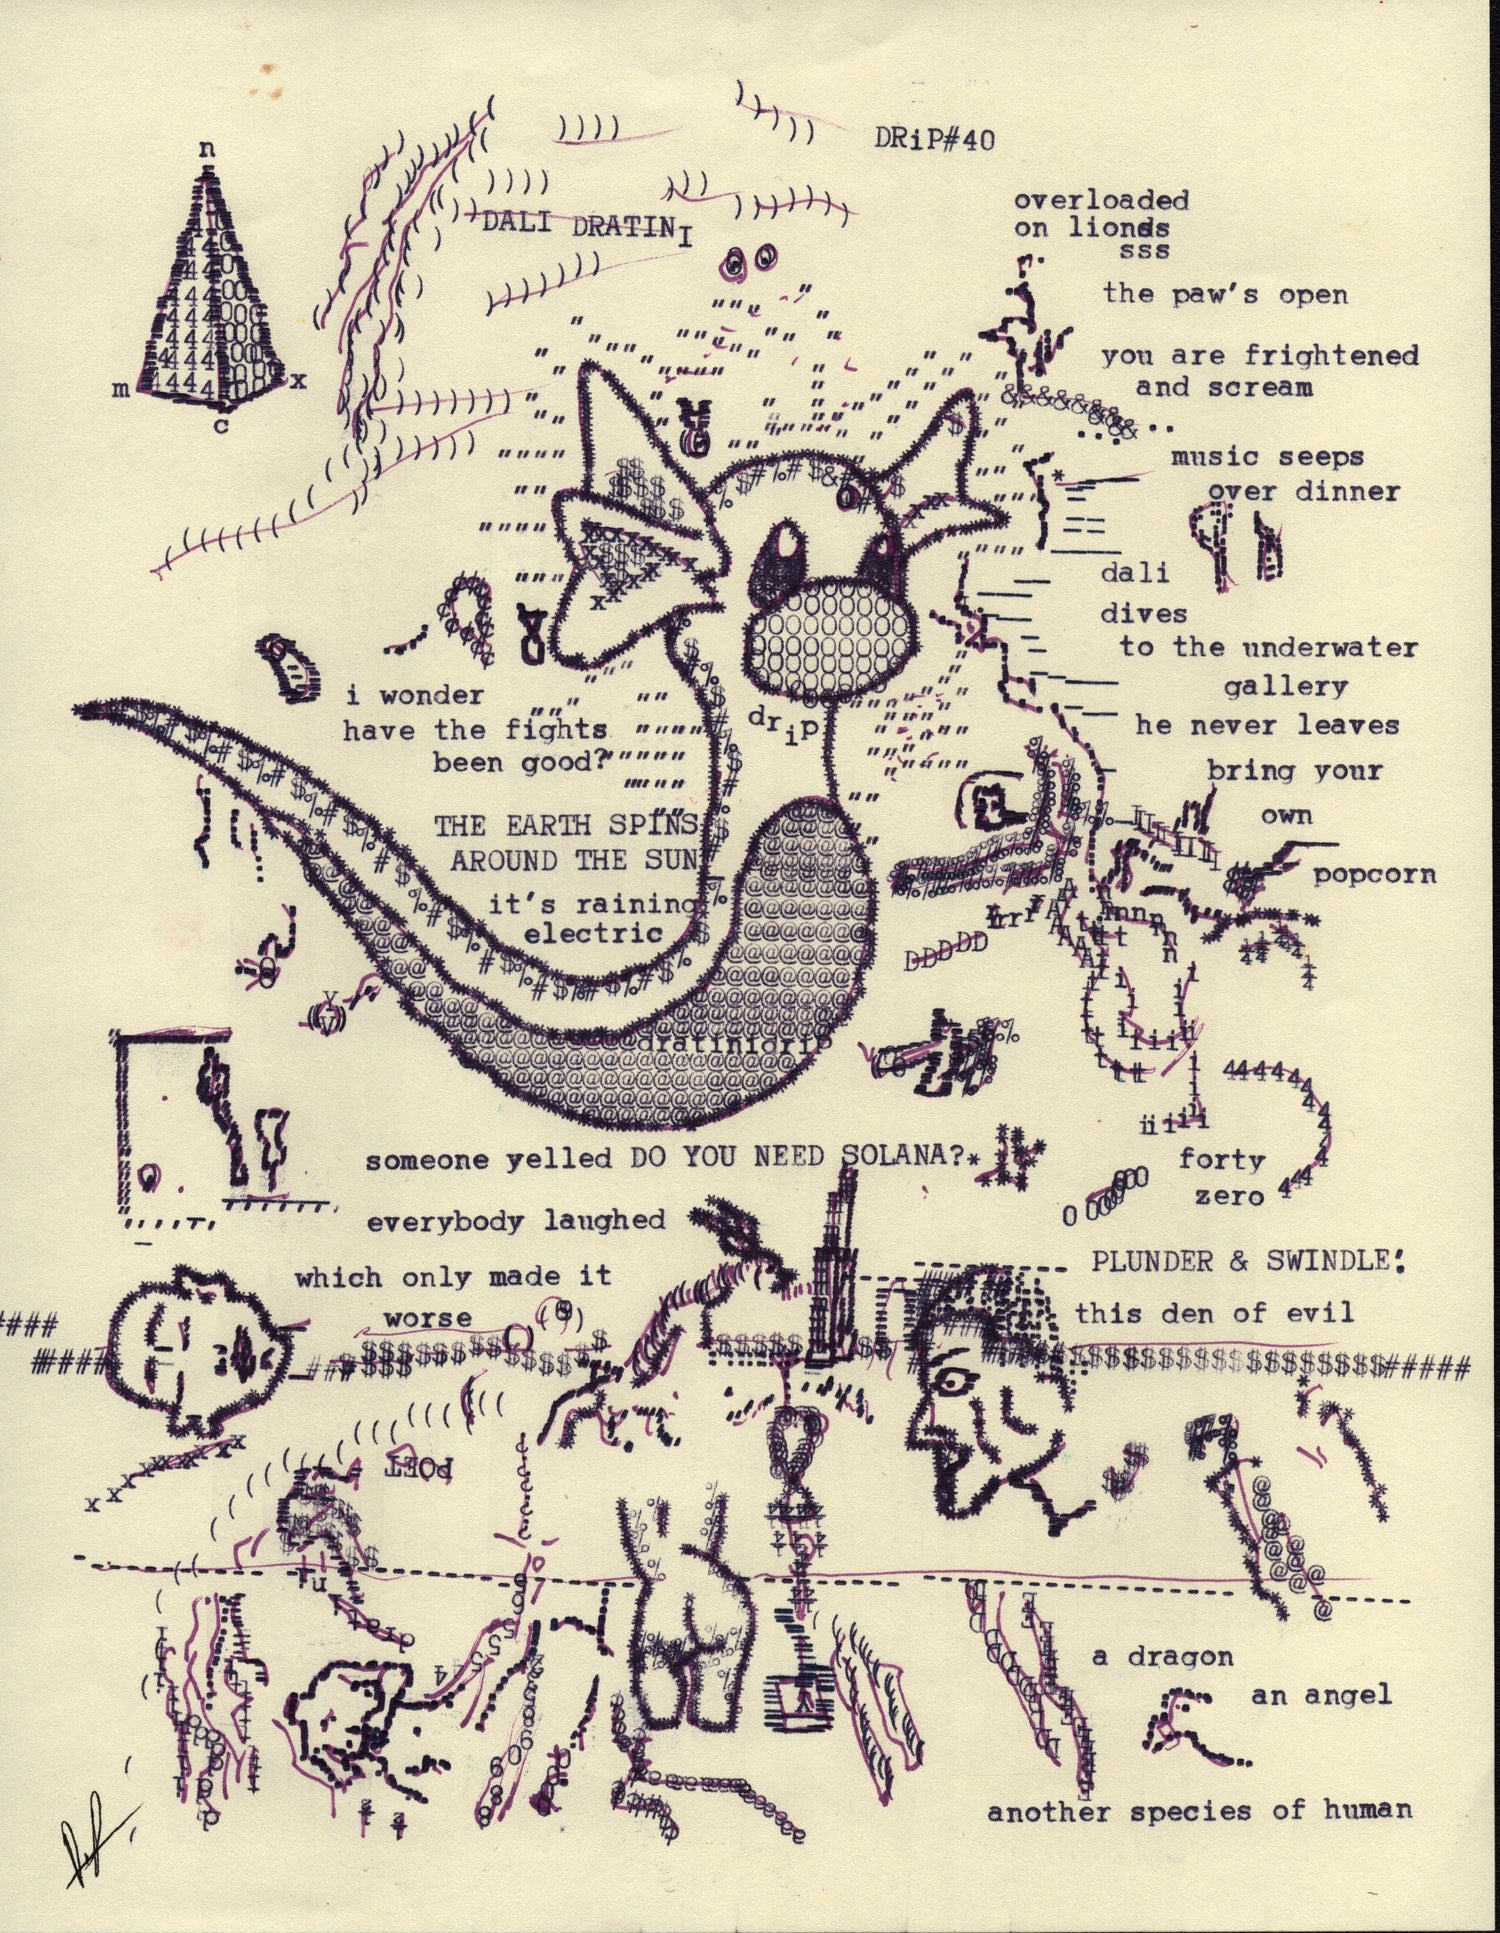 DRiP#40
n
m
x
c
DALI DRATINI
overloaded
on lionds
sss
the paw's open
you are frightened
and scream
music seeps
over dinner
dali
dives
to the underwater
gallery
he never leaves
bring your
own
popcorn
i wonder
have the fights
been good?
drip
THE EARTH SPINS
AROUND THE SUN
it's raining
electric
dratinidrip
someone yelled DO YOU NEED SOLANA?
everybody laughed
which only made it
worse
forty
zero
PLUNDER & SWINDLE:
this den of evil
POET
a dragon
an angel
another species of human